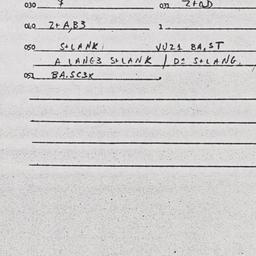 030 7 031 Z+0D
040 Z+A,B3 1
050 S+LANK: VUZ1 BA,ST
A LANG3 S+LANK / D= S+LANG.
052 BA.SC3K